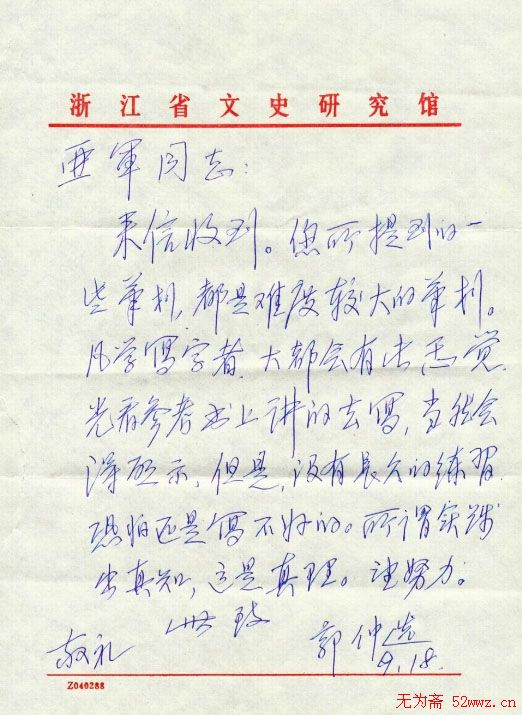 浙江省文史研究馆
亚軍同志：
来信收到。您所提到的一
些筆划，都是难度较大的筆划。
凡学寫字者，大都会有此感觉。
光看参考书上讲的去寫，当然会
得启示，但是，没有長久的练習
恐怕还是寫不好的。所谓实践
出真知，这是真理。望努力。
此致
敬礼
郭仲选
9.18.
Z040288
无为斋 52wwz.cn